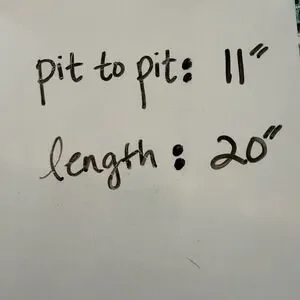 pit to pit: 11"
length: 20"